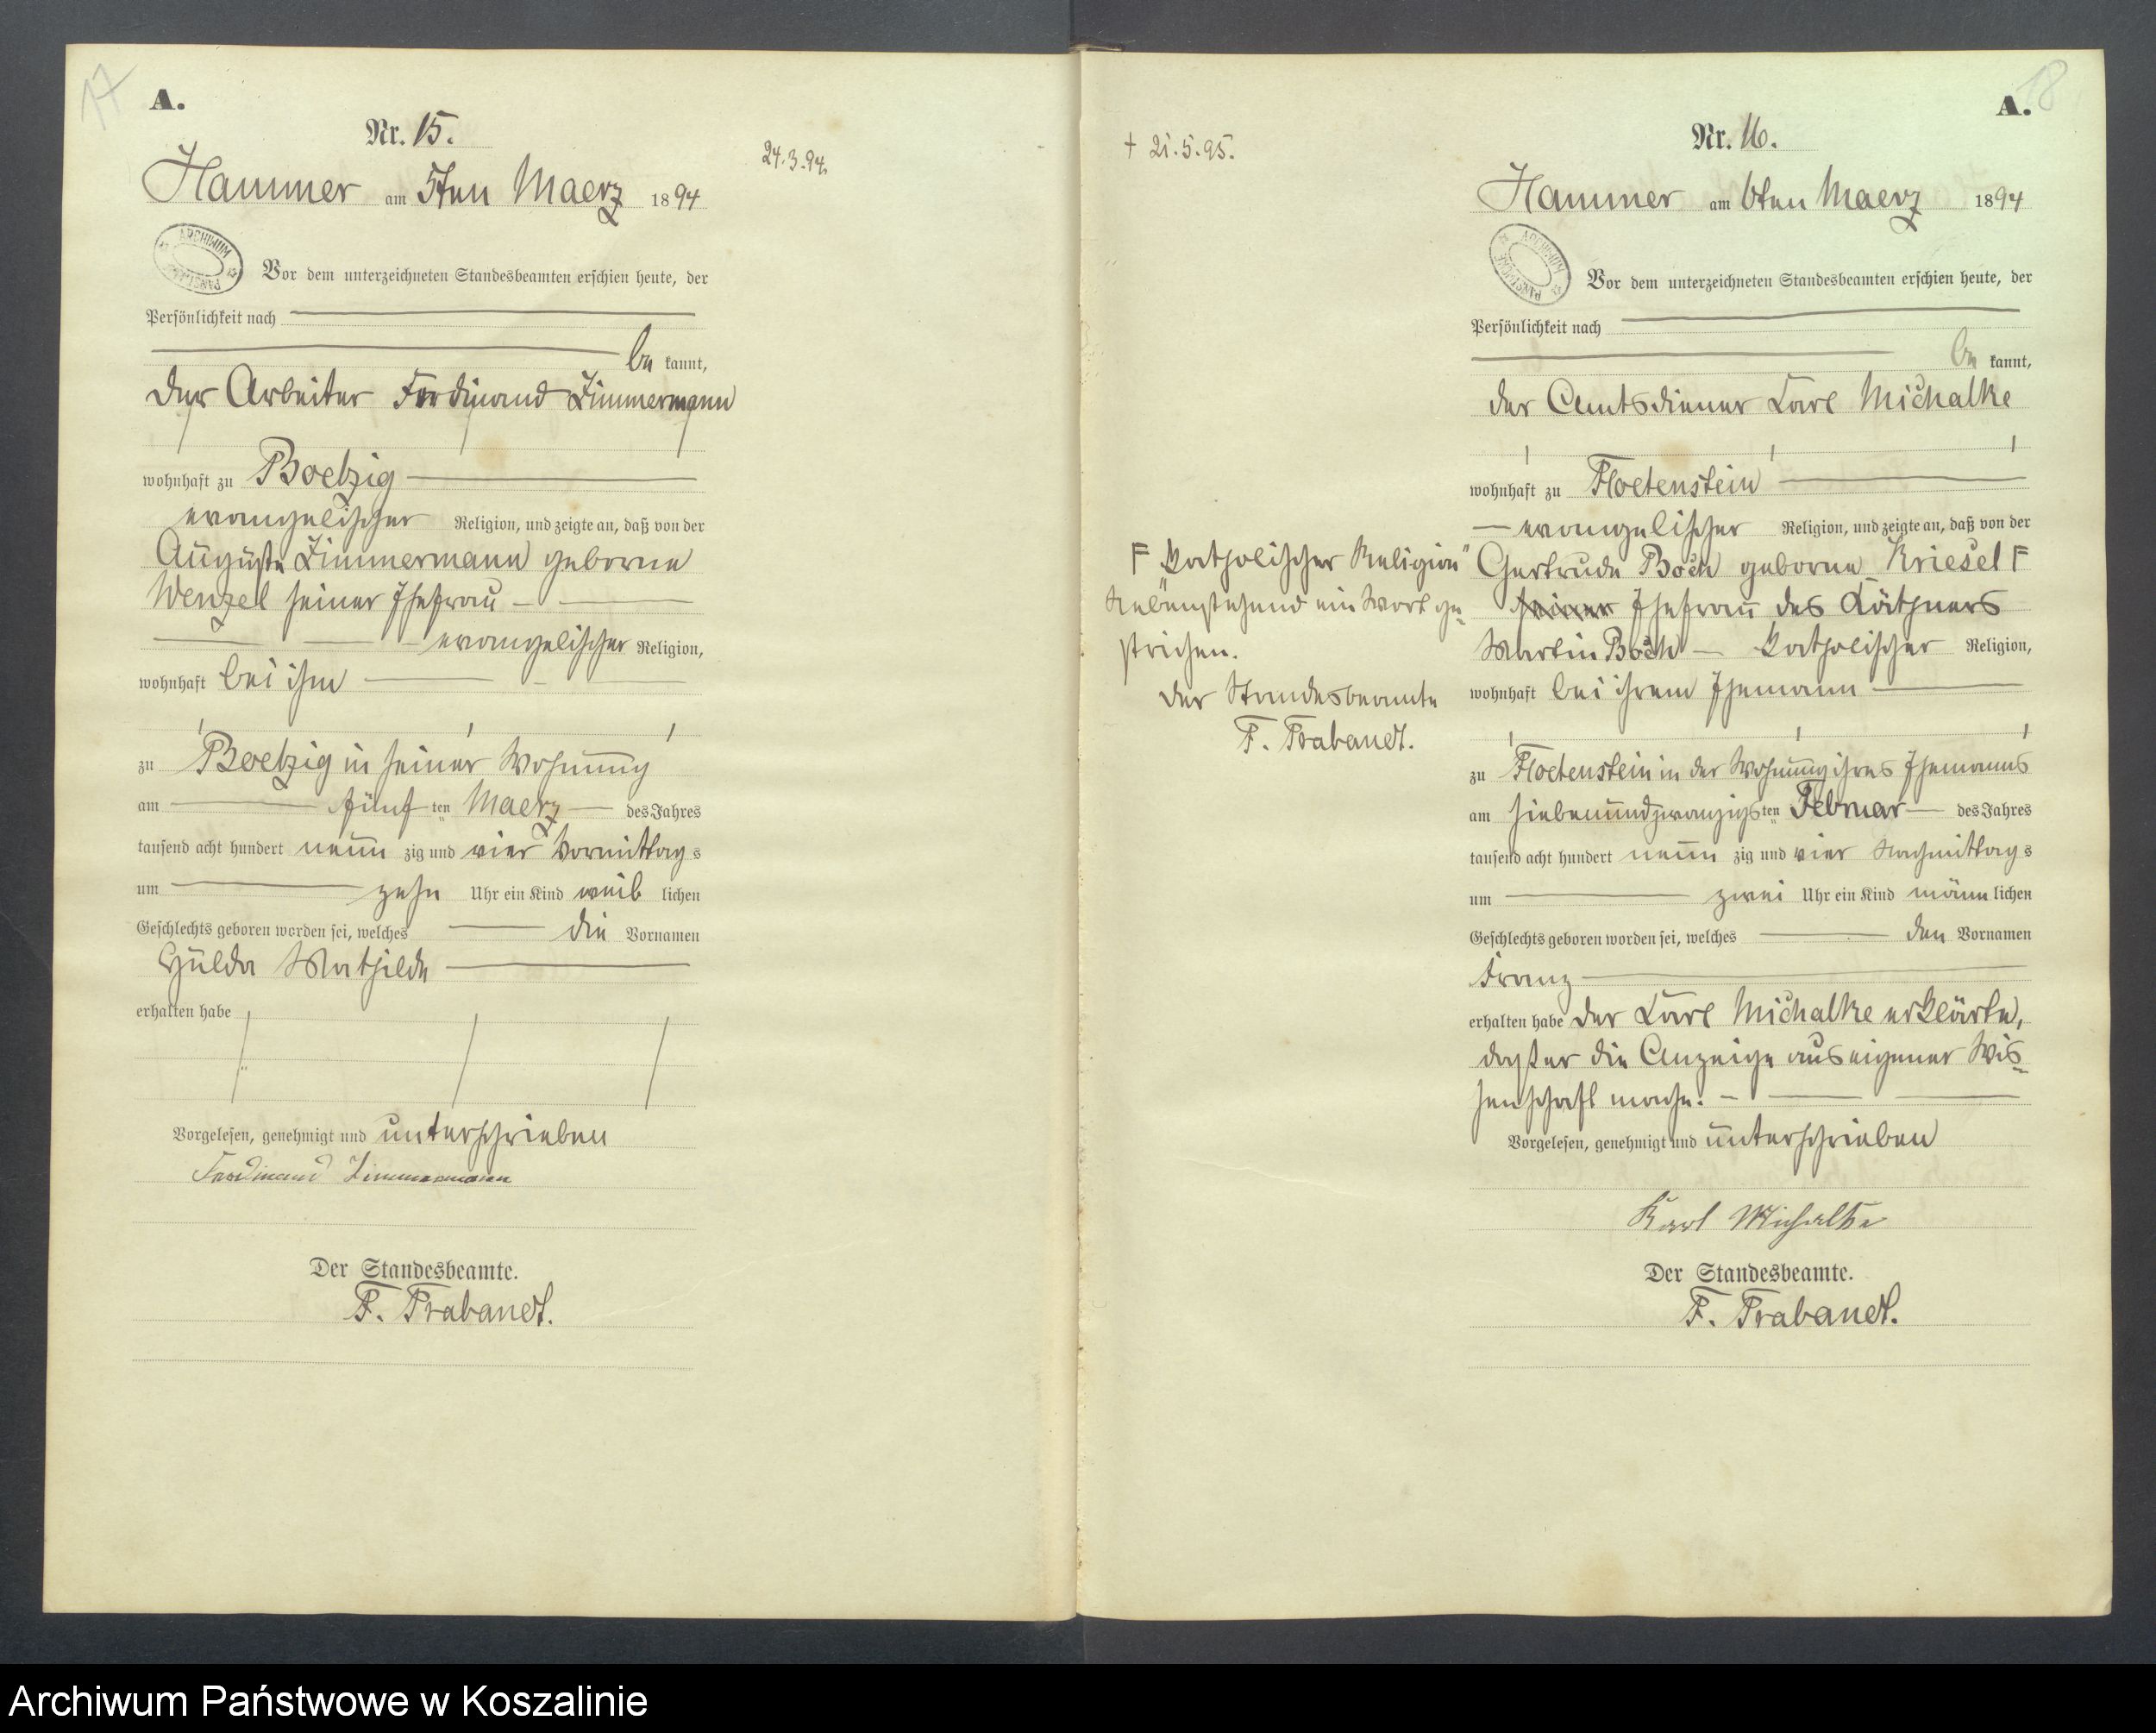 17
A.
Nr. 15.
24.3.94.
Hammer am 5ten Maerz 1894
ARCHIWUM PAŃSTWOWE
Vor dem unterzeichneten Standesbeamten erschien heute, der
Persönlichkeit nach
be kannt,
der Arbeiter Ferdinand Zimmermann
wohnhaft zu Boelzig
evangelischer Religion, und zeigte an, daß von der
Auguste Zimmermann geborne
Wenzel seiner Ehefrau
evangelischer Religion,
wohnhaft bei ihm
zu Boelzig in seiner Wohnung
am fünf ten Maerz des Jahres
tausend acht hundert neun zig und vier Vormittag s
um zehn Uhr ein Kind weib lichen
Geschlechts geboren worden sei, welches die Vornamen
Hulda Mathilde
erhalten habe
Vorgelesen, genehmigt und unterschrieben
Ferdinand Zimmermann
Der Standesbeamte.
F. Trabandt.
18
A.
Nr. 16.
+ 21.5.95.
Hammer am 6ten Maerz 1894
ARCHIWUM PAŃSTWOWE
Vor dem unterzeichneten Standesbeamten erschien heute, der
Persönlichkeit nach
be kannt,
der Amtsdiener Carl Michalke
wohnhaft zu Floetenstein
evangelischer Religion, und zeigte an, daß von der
Gertrude Boch geborne Kriesel F
seiner Ehefrau des Käthners
Martin Boch katholischer Religion,
wohnhaft bei ihrem Ehemann
F katholischer Religion"
Nebenstehend ein Wort ge-
strichen.
Der Standesbeamte
F. Trabandt.
zu Floetenstein in der Wohnung ihres Ehemanns
am siebenundzwanzigs ten Februar des Jahres
tausend acht hundert neun zig und vier Nachmittag s
um zwei Uhr ein Kind männ lichen
Geschlechts geboren worden sei, welches den Vornamen
Franz
erhalten habe der Carl Michalke erklärte,
daß er die Anzeige aus eigener Wis-
senschaft mache.
Vorgelesen, genehmigt und unterschrieben
Karl Michalke
Der Standesbeamte.
F. Trabandt.
Archiwum Państwowe w Koszalinie